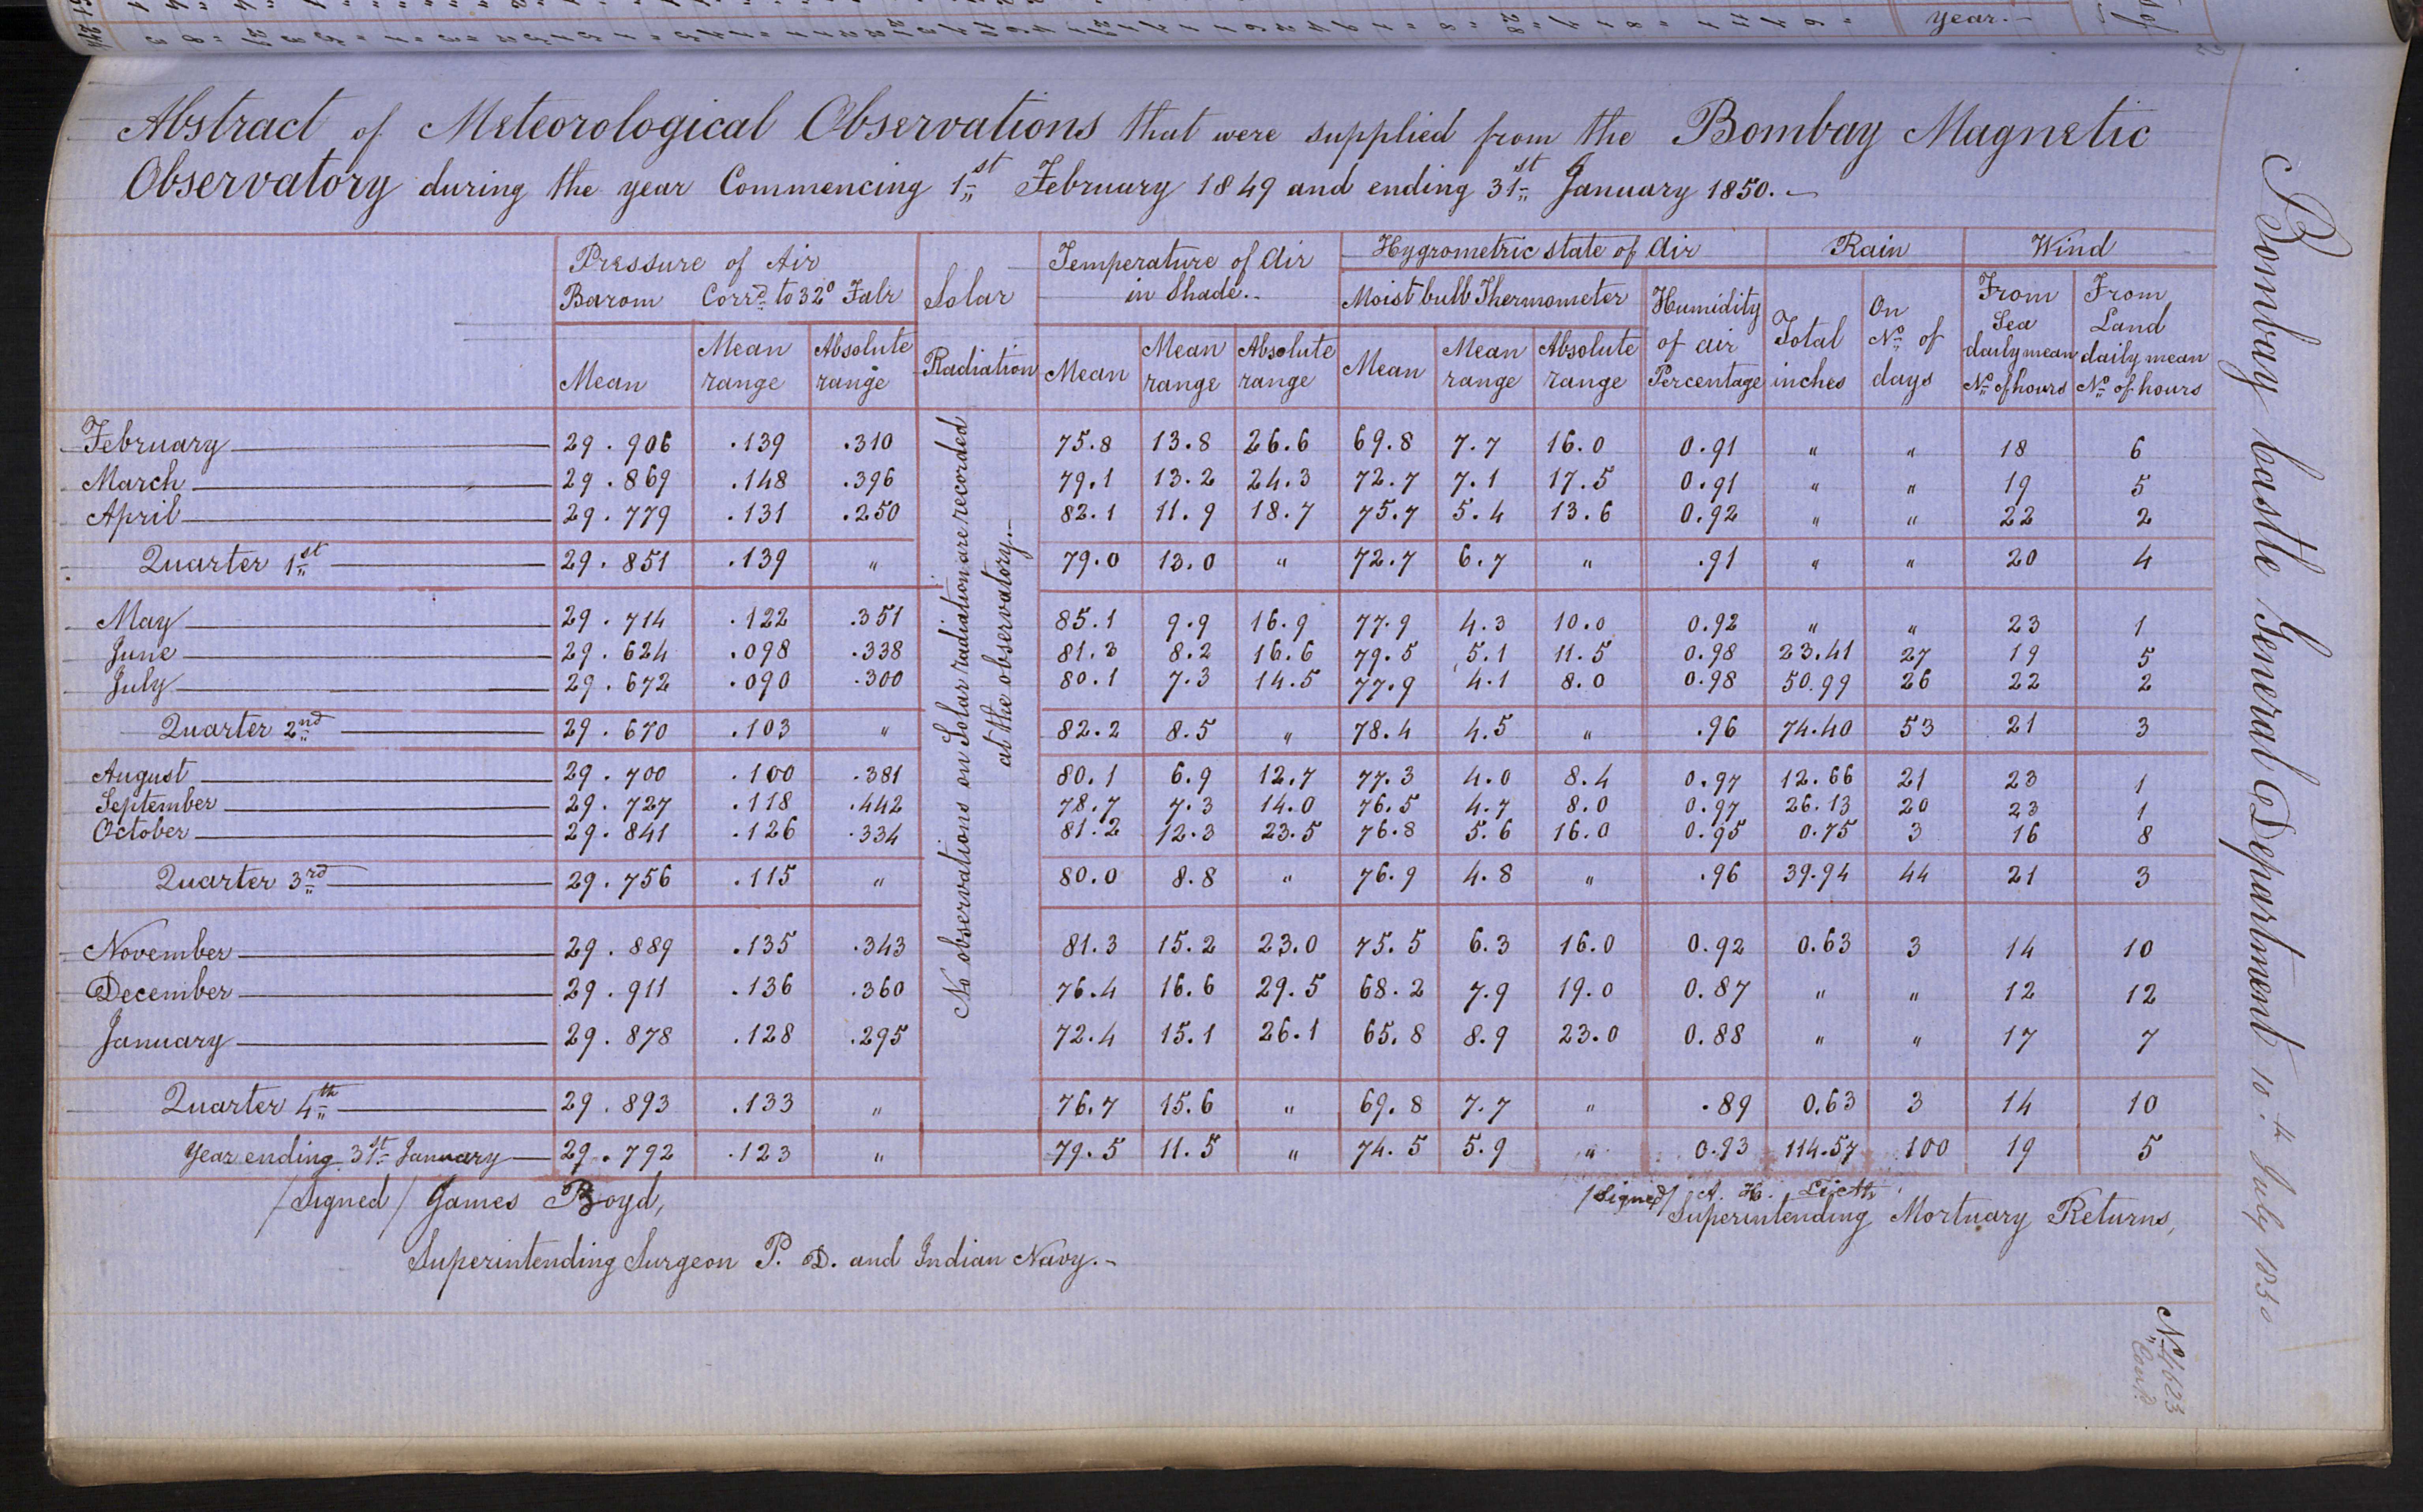 year.-
Abstract of Meteorological Observations that were supplied from the Bombay Magnetic
Observatory during the year Commencing 1st February 1849 and ending 31st January 1850.-
Pressure of Air Barom Corrd. to 32° Fahr | Solar Radiation | Temperature of Air in Shade.- | Hygrometric state of Air | Rain | Wind
Moist bulb Thermometer | Humidity of air Percentage | Total inches | On No. of days | From Sea daily mean No. of hours | From Land daily mean No. of hours
Mean | Mean range | Absolute range | Mean | Mean range | Absolute range | Mean | Mean range | Absolute range
No observations on Solar radiation are recorded
at the observatory.-
February 29.906 .139 .310 75.8 13.8 26.6 69.8 7.7 16.0 0.91 " " 18 6
March 29.869 .148 .396 79.1 13.2 24.3 72.7 7.1 17.5 0.91 " " 19 5
April 29.779 .131 .250 82.1 11.9 18.7 75.7 5.4 13.6 0.92 " " 22 2
Quarter 1st 29.851 .139 " 79.0 13.0 " 72.7 6.7 " .91 " " 20 4
May 29.714 .122 .351 85.1 9.9 16.9 77.9 4.3 10.0 0.92 " " 23 1
June 29.624 .098 .338 81.3 8.2 16.6 79.5 5.1 11.5 0.98 23.41 27 19 5
July 29.672 .090 .300 80.1 7.3 14.5 77.9 4.1 8.0 0.98 50.99 26 22 2
Quarter 2nd 29.670 .103 " 82.2 8.5 " 78.4 4.5 " .96 74.40 53 21 3
August 29.700 .100 .381 80.1 6.9 12.7 77.3 4.0 8.4 0.97 12.66 21 23 1
September 29.727 .118 .442 78.7 7.3 14.0 76.5 4.7 8.0 0.97 26.13 20 23 1
October 29.841 .126 .334 81.2 12.3 23.5 76.8 5.6 16.0 0.95 0.75 3 16 8
Quarter 3rd 29.756 .115 " 80.0 8.8 " 76.9 4.8 " .96 39.94 44 21 3
November 29.889 .135 .343 81.3 15.2 23.0 75.5 6.3 16.0 0.92 0.63 3 14 10
December 29.911 .136 .360 76.4 16.6 29.5 68.2 7.9 19.0 0.87 " " 12 12
January 29.878 .128 .295 72.4 15.1 26.1 65.8 8.9 23.0 0.88 " " 17 7
Quarter 4th 29.893 .133 " 76.7 15.6 " 69.8 7.7 " .89 0.63 3 14 10
Year ending 31st January 29.792 .123 " 79.5 11.5 " 74.5 5.9 " 0.93 114.57 100 19 5
/Signed/ James Boyd,
Superintending Surgeon P. D. and Indian Navy.-
/Signed/ A. H. Leith
Superintending Mortuary Returns,
Bombay Castle General Department 10th July 1850
No. 4623